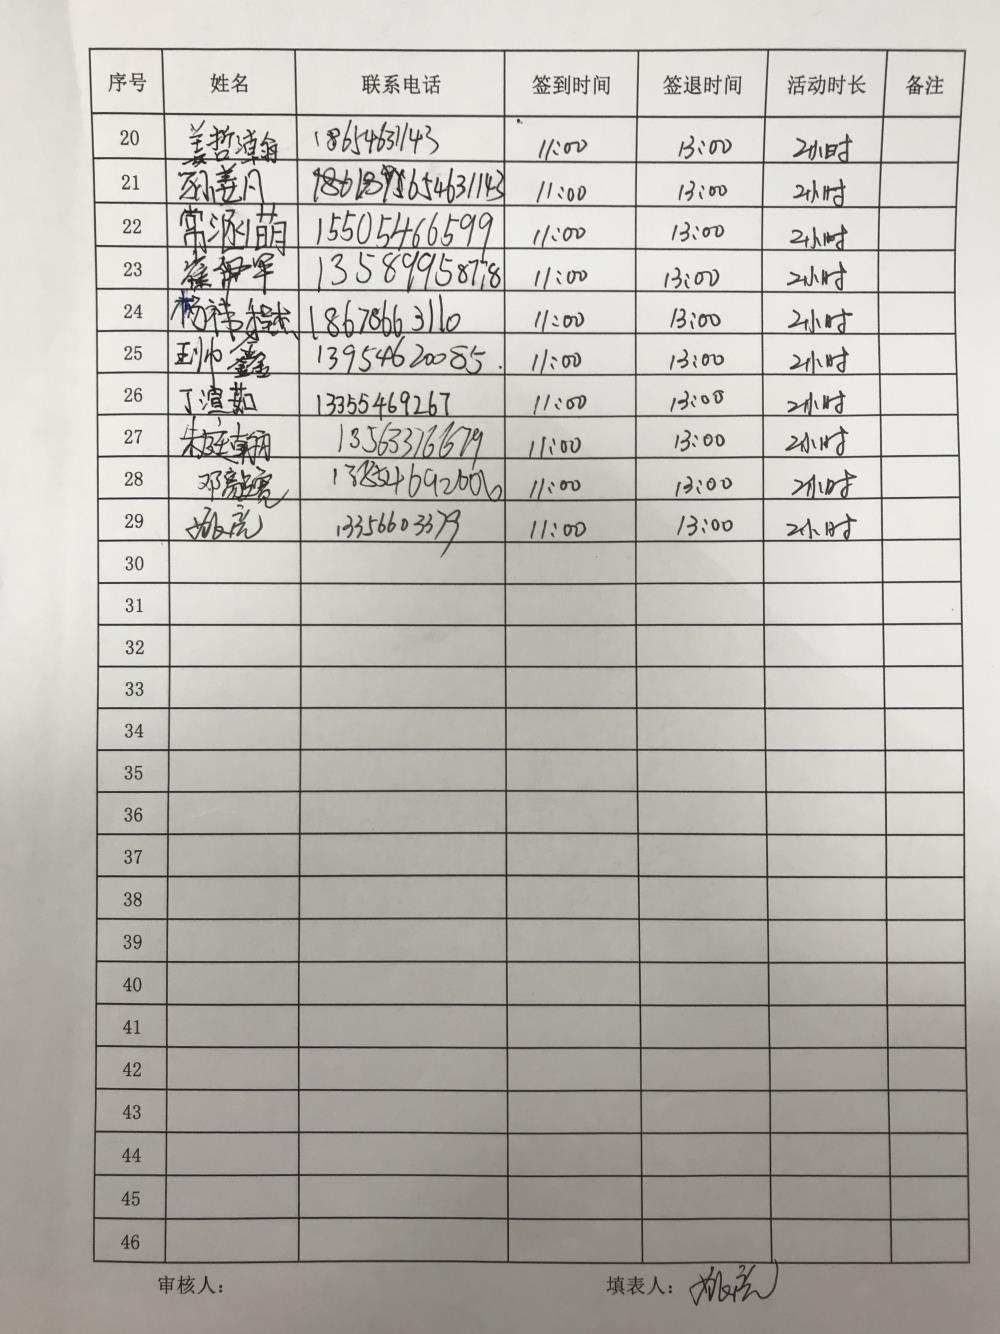 序号 姓名 联系电话 签到时间 签退时间 活动时长 备注
20 姜哲瀚 18654631143 11:00 13:00 2小时
21 11:00 13:00 2小时
22 常涵萌 15505466599 11:00 13:00 2小时
23 13589958778 11:00 13:00 2小时
24 18678663110 11:00 13:00 2小时
25 王帅鑫 13954620085. 11:00 13:00 2小时
26 丁渲茹 13355469267 11:00 13:00 2小时
27 朱廷翰 11:00 13:00 2小时
28 11:00 13:00 2小时
29 11:00 13:00 2小时
30
31
32
33
34
35
36
37
38
39
40
41
42
43
44
45
46
审核人： 填表人：